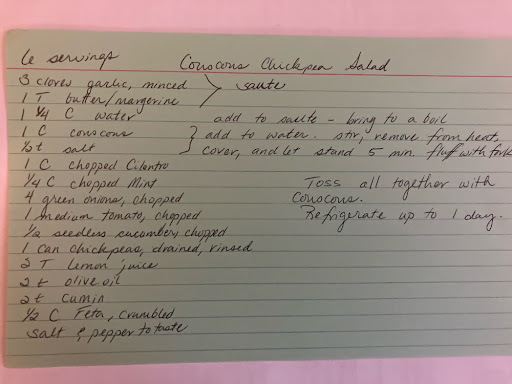 6 servings Couscous Chickpea Salad
3 cloves garlic, minced } saute
1 T butter/margerine
1 1/4 C water add to saute - bring to a boil
1 C couscous } add to water. stir, remove from heat,
1/2 t salt cover, and let stand 5 min. fluff with fork
1 C chopped Cilantro
1/4 C chopped Mint Toss all together with
4 green onions, chopped couscous.
1 medium tomato, chopped Refrigerate up to 1 day.
1/2 seedless cucumber, chopped
1 can chickpeas, drained, rinsed
2 T lemon juice
2 t olive oil
2 t cumin
1/2 C Feta, crumbled
salt & pepper to taste